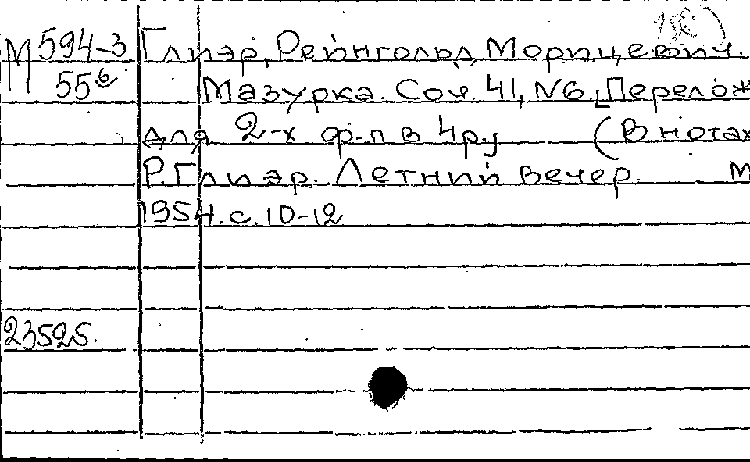 М 594-3 Глиэр, Рейнгольд Морицевич.
55б Мазурка. Соч. 41, N6. [Перелож
для 2-х ф-п в 4 р.] (В нотах
Р. Глиэр. Летний вечер. М
1954. с. 10-12
23525.